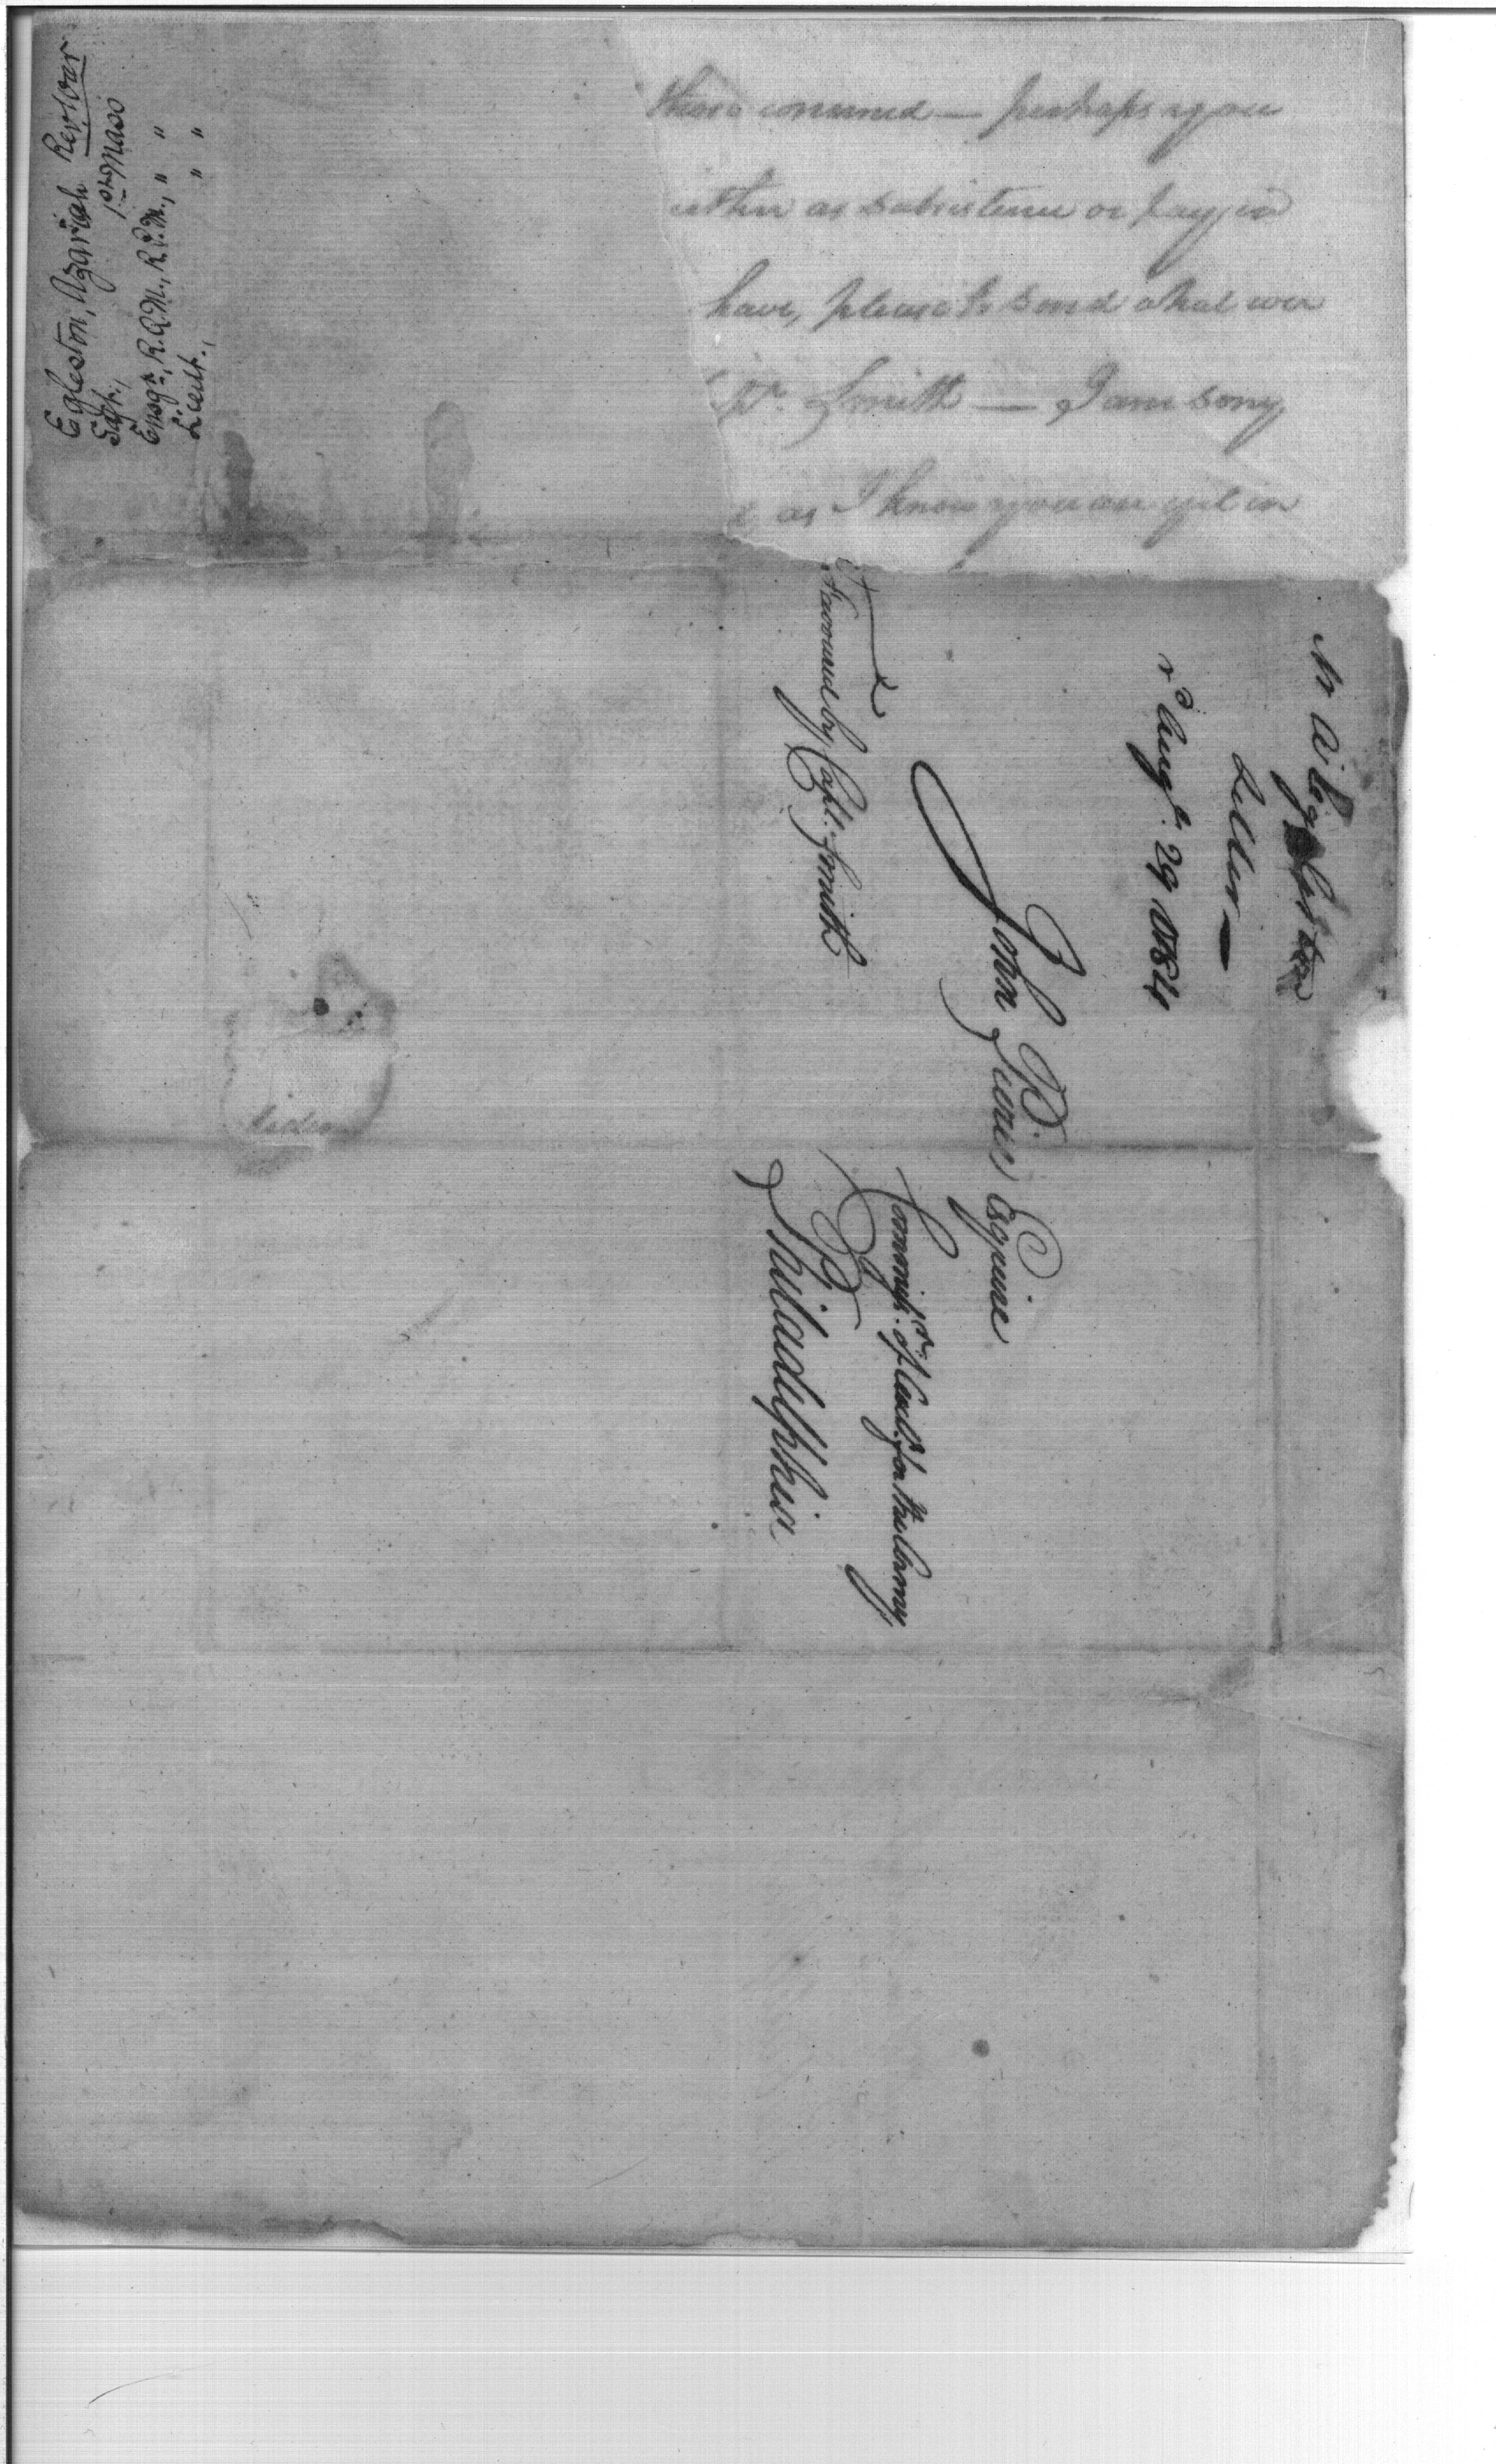 Egleston, Azariah Rev. War
Sgt., 1st Mass
Ensgn, R.Q.M., R.P.M., " "
Lieut., " "
these concerned — perhaps you
either as subsistence or pay, in
have, please to send what ever
Smith — I am sorry
as I know you are yet in
Mr A Egleston
Letter —
rd Augt. 29 1784
John Pierce Esquire
Commissr. of Accts. for the Army
Philadelphia
Favoured by Capt. Smith